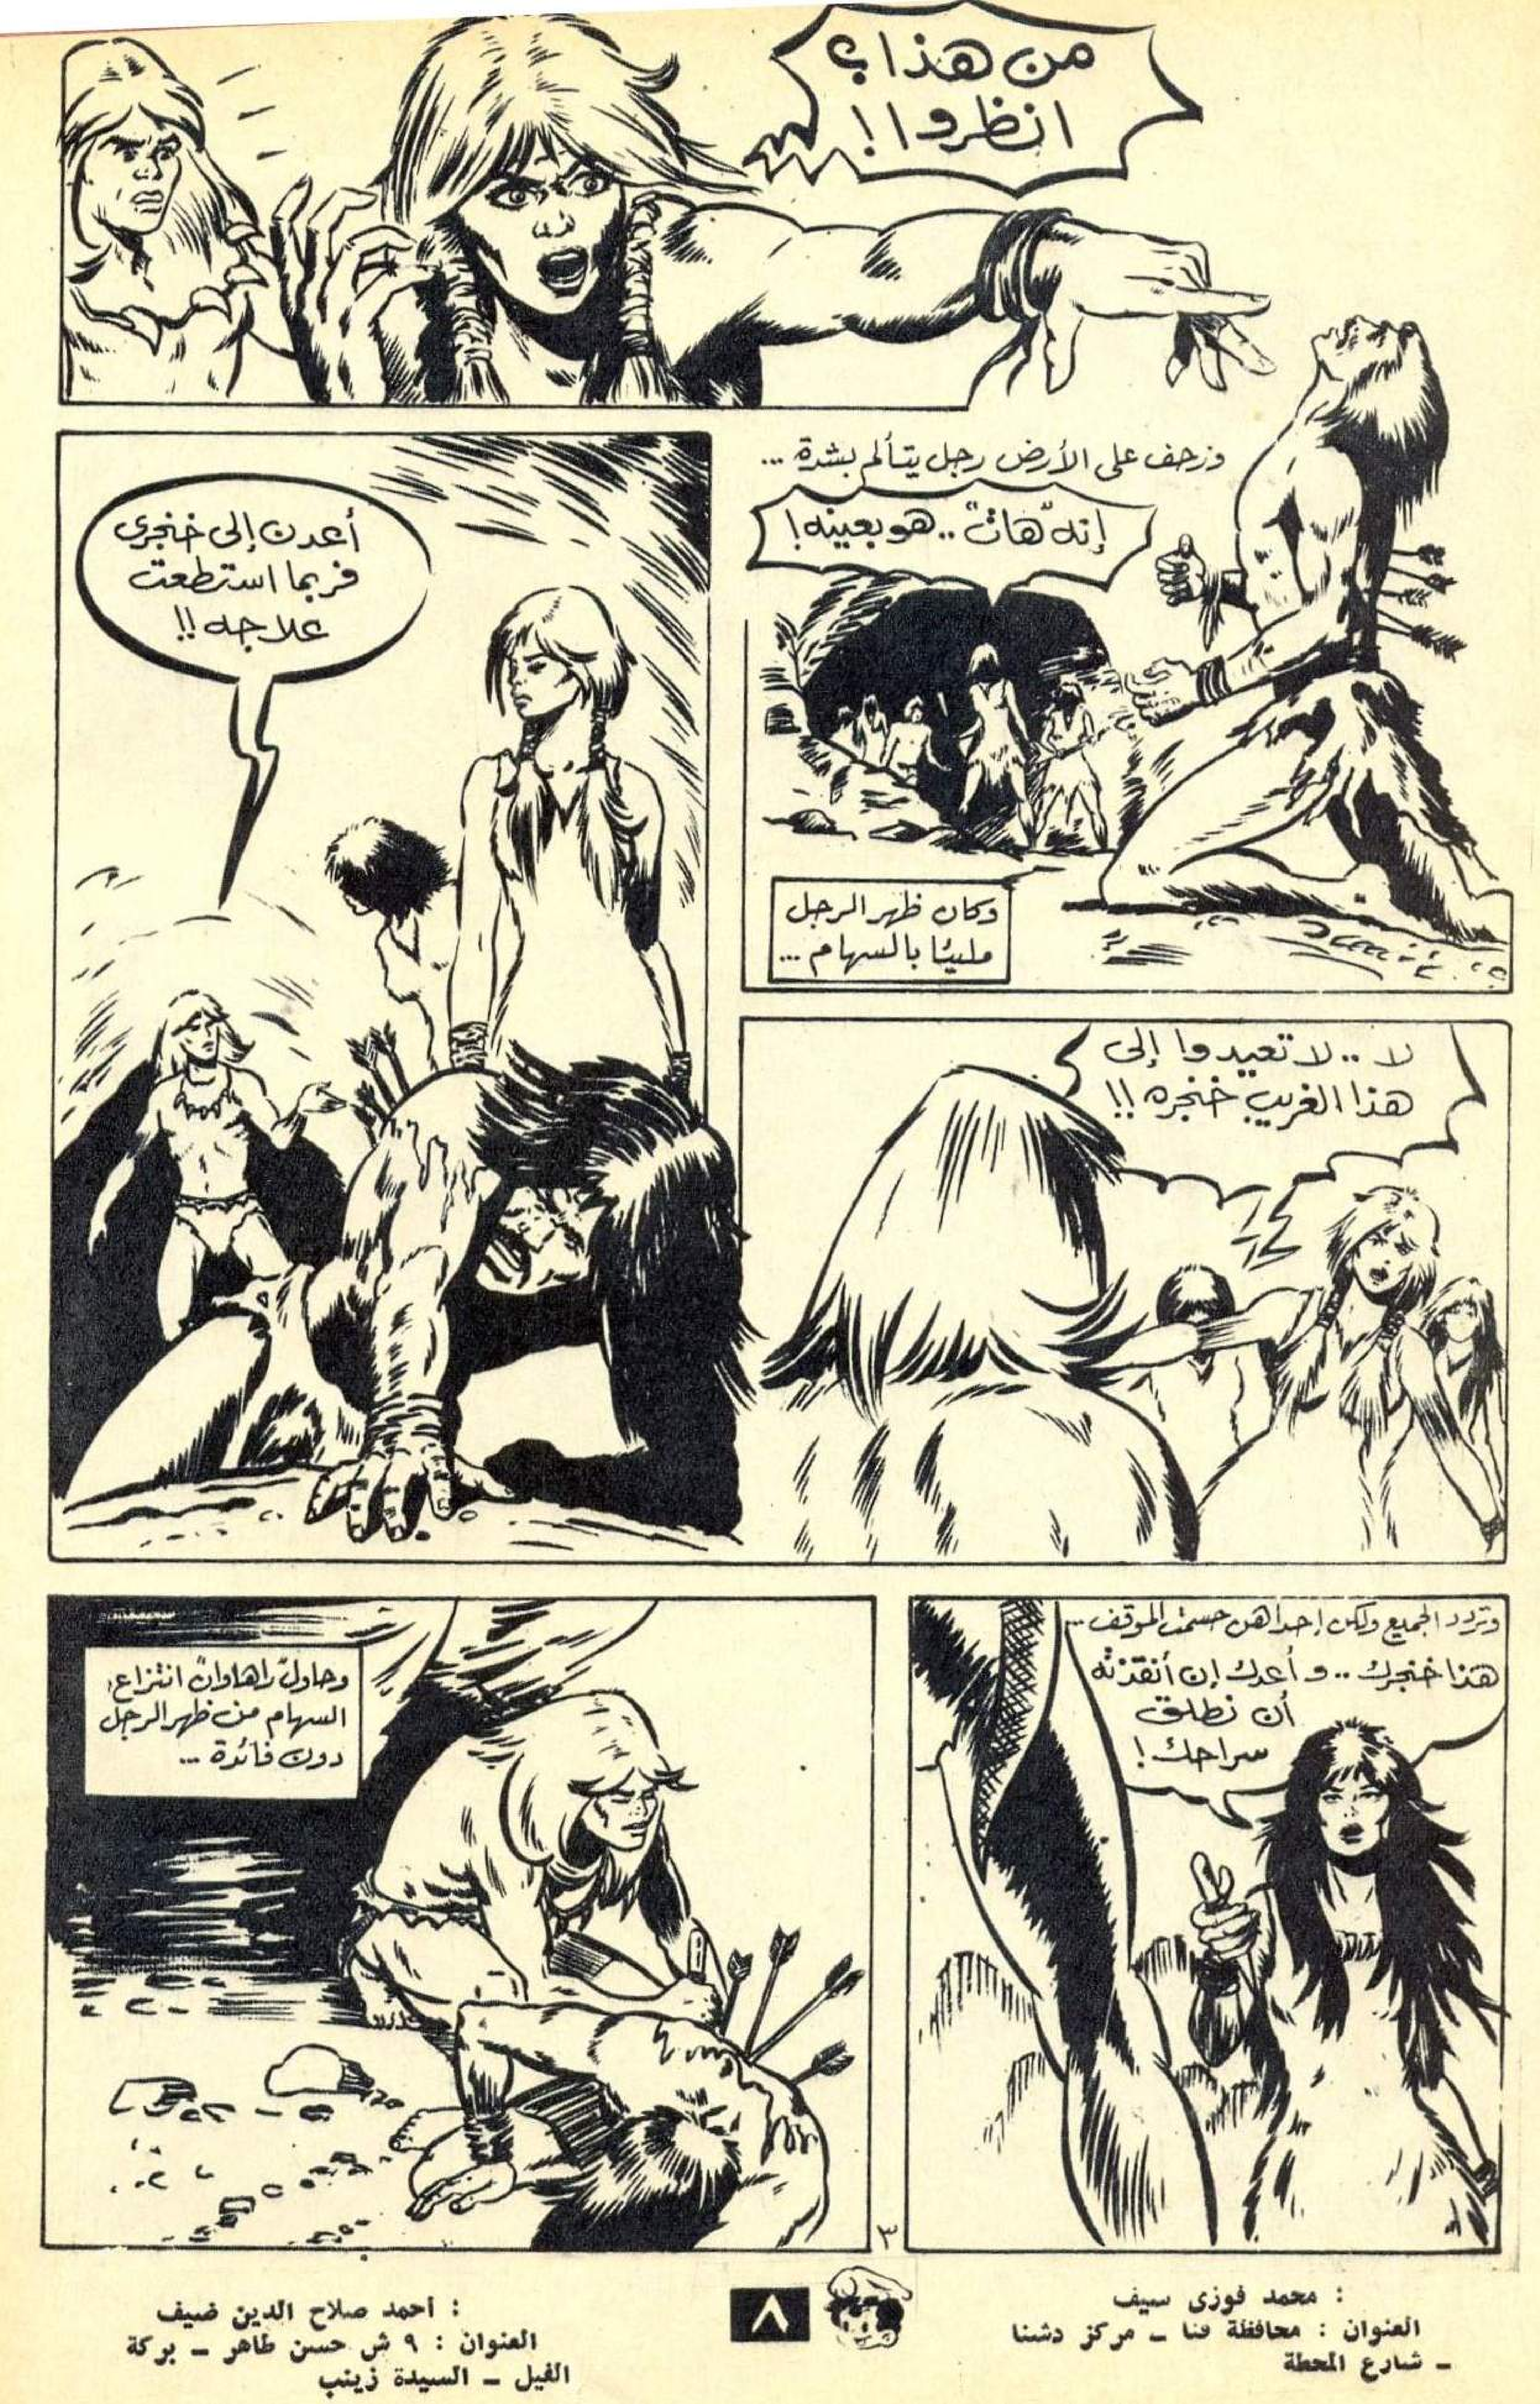 من هذا؟
انظروا!
وزحف على الأرض رجل يتألم بشدة ...
إنه "هات" .. هو بعينه!
وكان ظهر الرجل
مليئا بالسهام ...
أعدن إلى خنجرى
فربما استطعت
علاجه!!
لا .. لا تعيدوا إلى
هذا الغريب خنجره!!
وتردد الجميع ولكن إحداهن حسمت الموقف ...
هذا خنجرك .. وأعدك إن أنقذته
أن نطلق
سراحك!
وحاول "راهاوان" انتزاع
السهام من ظهر الرجل
دون فائدة ...
٣
: محمد فوزى سيف
العنوان : محافظة قنا – مركز دشنا
– شارع المحطة
٨
: أحمد صلاح الدين ضيف
العنوان : ٩ ش حسن طاهر – بركة
الفيل – السيدة زينب